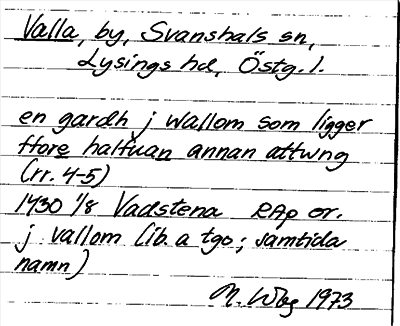 Valla, by, Svanshals sn,
Lysings hd, Östg. l.
en gardh j wallom som ligger
ffore halfuan annan attwng
(rr. 4-5)
1430 1/8 Vadstena RAp or.
j vallom (ib. a tgo; samtida
namn)
M. Wbg 1973